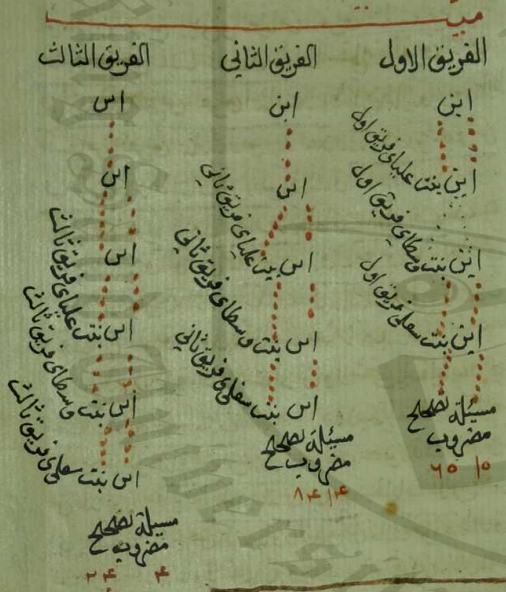 ميت
الفريق الاول
ابن
ابن بنت علیای فریق اول
ابن بنت وسطای فریق اول
ابن بنت سفلی فریق اول
مسئلة تصحيح
مضروب
الفريق الثاني
ابن
ابن
ابن بنت علیای فریق ثانی
ابن بنت وسطای فریق ثانی
ابن بنت سفلی فریق ثانی
مسئلة تصحيح
مضروب
الفريق الثالث
ابن
ابن
ابن
ابن بنت علیای فریق ثالث
ابن بنت وسطای فریق ثالث
ابن بنت سفلی فریق ثالث
مسئلة تصحيح
مضروب